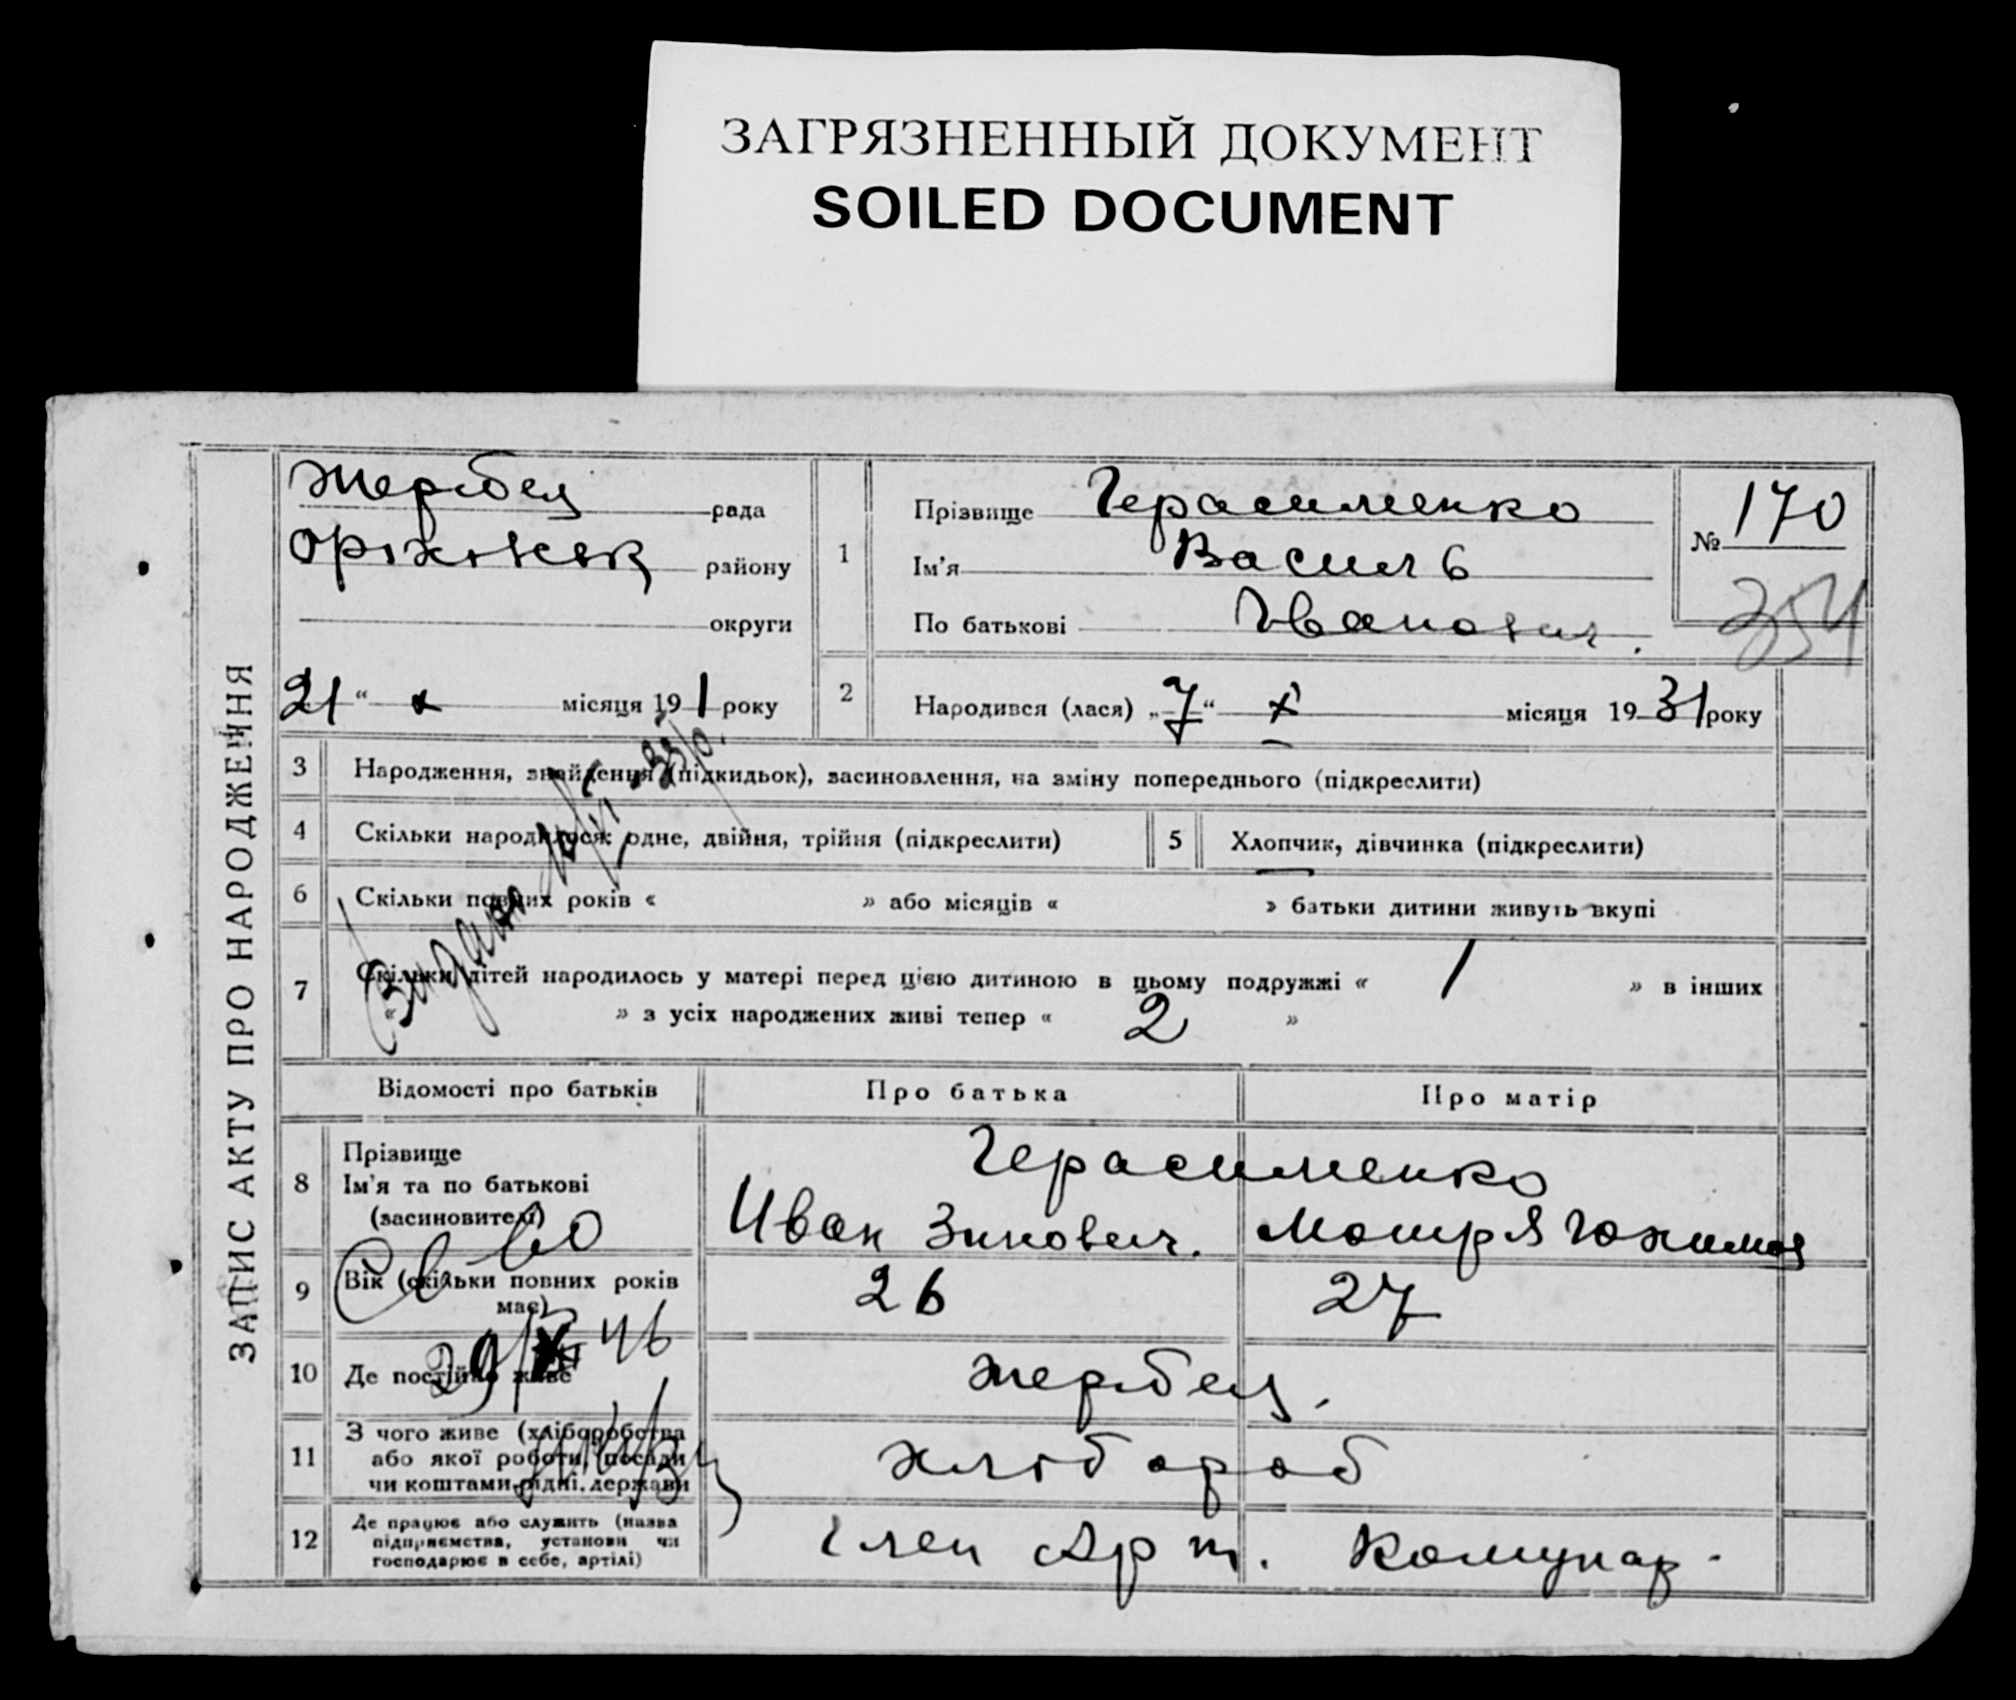 ЗАГРЯЗНЕННЫЙ ДОКУМЕНТ
SOILED DOCUMENT
ЗАПИС АКТУ ПРО НАРОДЖЕННЯ
Жеребец рада
Оріхівськ району
округи
21 “ X місяця 19 1 року
1 Прізвище Герасименко
Ім'я Василь
По батькові Іванович.
№ 170
354
2 Народився (лася) „7“ X місяця 1931 року
3 Народження, знайдення (підкидьок), засиновлення, на зміну попереднього (підкреслити)
4 Скільки народилося: одне, двійня, трійня (підкреслити) 5 Хлопчик, дівчинка (підкреслити)
6 Скільки повних років « » або місяців « » батьки дитини живуть вкупі
7 Скільки дітей народилось у матері перед цією дитиною в цьому подружжі « 1 » в інших
« » з усіх народжених живі тепер « 2 »
Відомості про батьків Про батька Про матір
8 Прізвище
Ім'я та по батькові
(засиновителі)
Герасименко
Иван Зинович. Мотря Юхимов
9 Вік (скільки повних років
має)
26 27
10 Де постійно живе Жеребец.
11 З чого живе (хліборобства
або якої роботи, посади
чи коштами рідні, держави
хлібороб
12 Де працює або служить (назва
підприємства, установи чи
господарює в себе, артілі)
член Арт. Комунар.
Видано
46